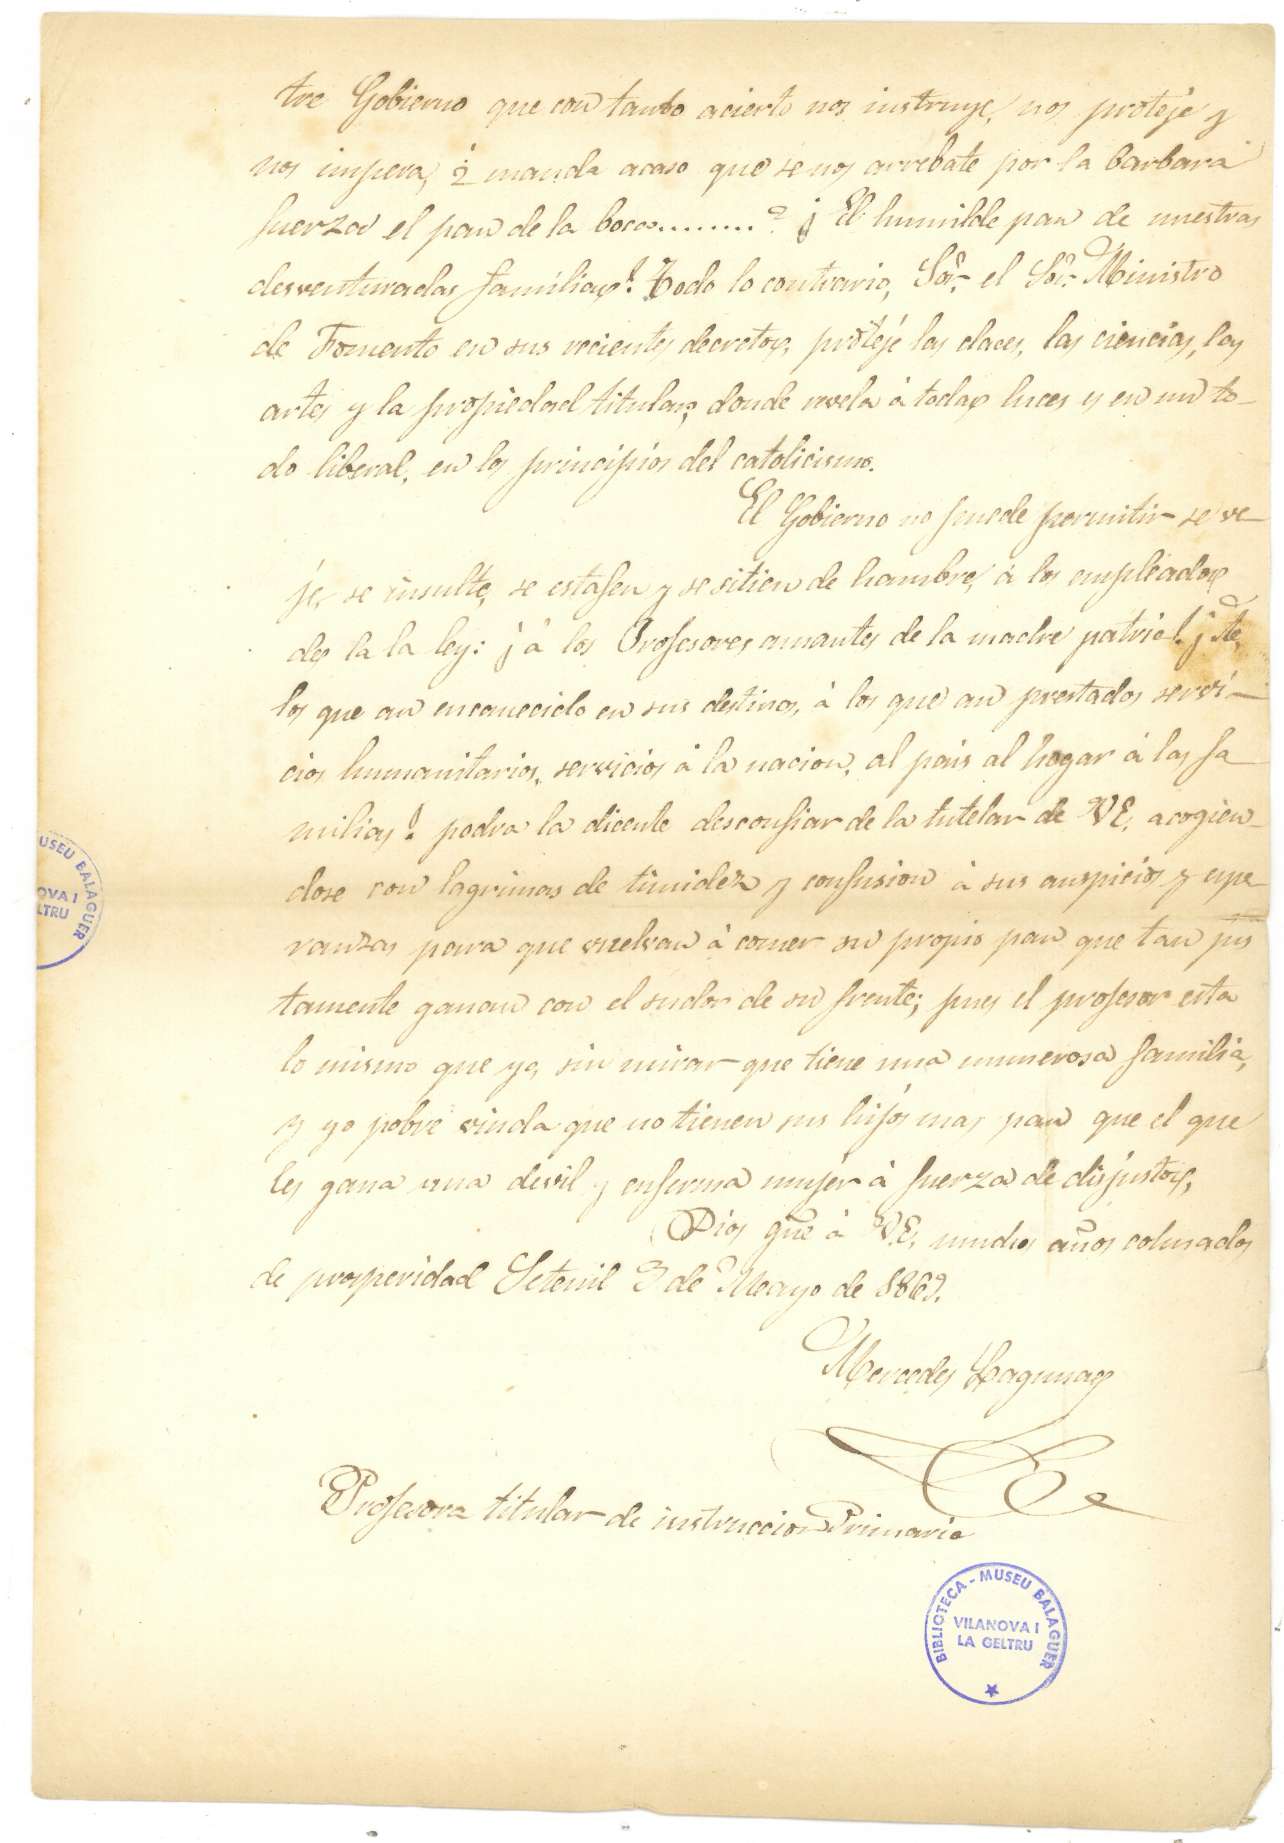 tre Gobierno que con tanto acierto nos instruye, nos protéje y
nos impera, ¿ manda acaso que se nos arrebate por la barbara
fuerza el pan de la boca.........? ¡ El humilde pan de nuestras
desventuradas familias! Todo lo contrario, Sor. el Sor. Ministro
de Fomento en sus recientes decretos, protéje las clases, las ciencias, las
artes y la propiedad titular, donde revela á todas luces y en un to-
do liberal, en los principios del catolicismo.
El Gobierno no puede permitir se ve-
je, se insulte, se estafen y se sitien de hambre, á los empleados
des la la ley: ¡ á los Profesores amantes de la madre patria! ¡
los que an encanecido en sus destinos, á los que an prestados servi-
cios humanitarios, servicios á la nacion, al pais al hogar á las fa
milias! podra la dicente desconfiar de la tutelar de VE, acogien-
dose con lagrimas de timidez y confusion á sus auspicios y espe-
ranzas para que vuelvan á comer su propio pan que tan jus
tamente ganan con el sudor de su frente; pues el profesor esta
lo mismo que yo, sin mirar que tiene una numerosa familia,
y yo pobre viuda que no tienen sus hijos mas pan que el que
les gana una devil y enferma mujer á fuerza de disjustos,
Dios gue á V.E. muchos años colmados
de prosperidad Setenil 3 de Mayo de 1869.
Mercedes Lagunas
Profesora titular de instruccion Primaria
BIBLIOTECA - MUSEU BALAGUER
VILANOVA I
LA GELTRU
USEU BALAGUER
OVA I
LTRU